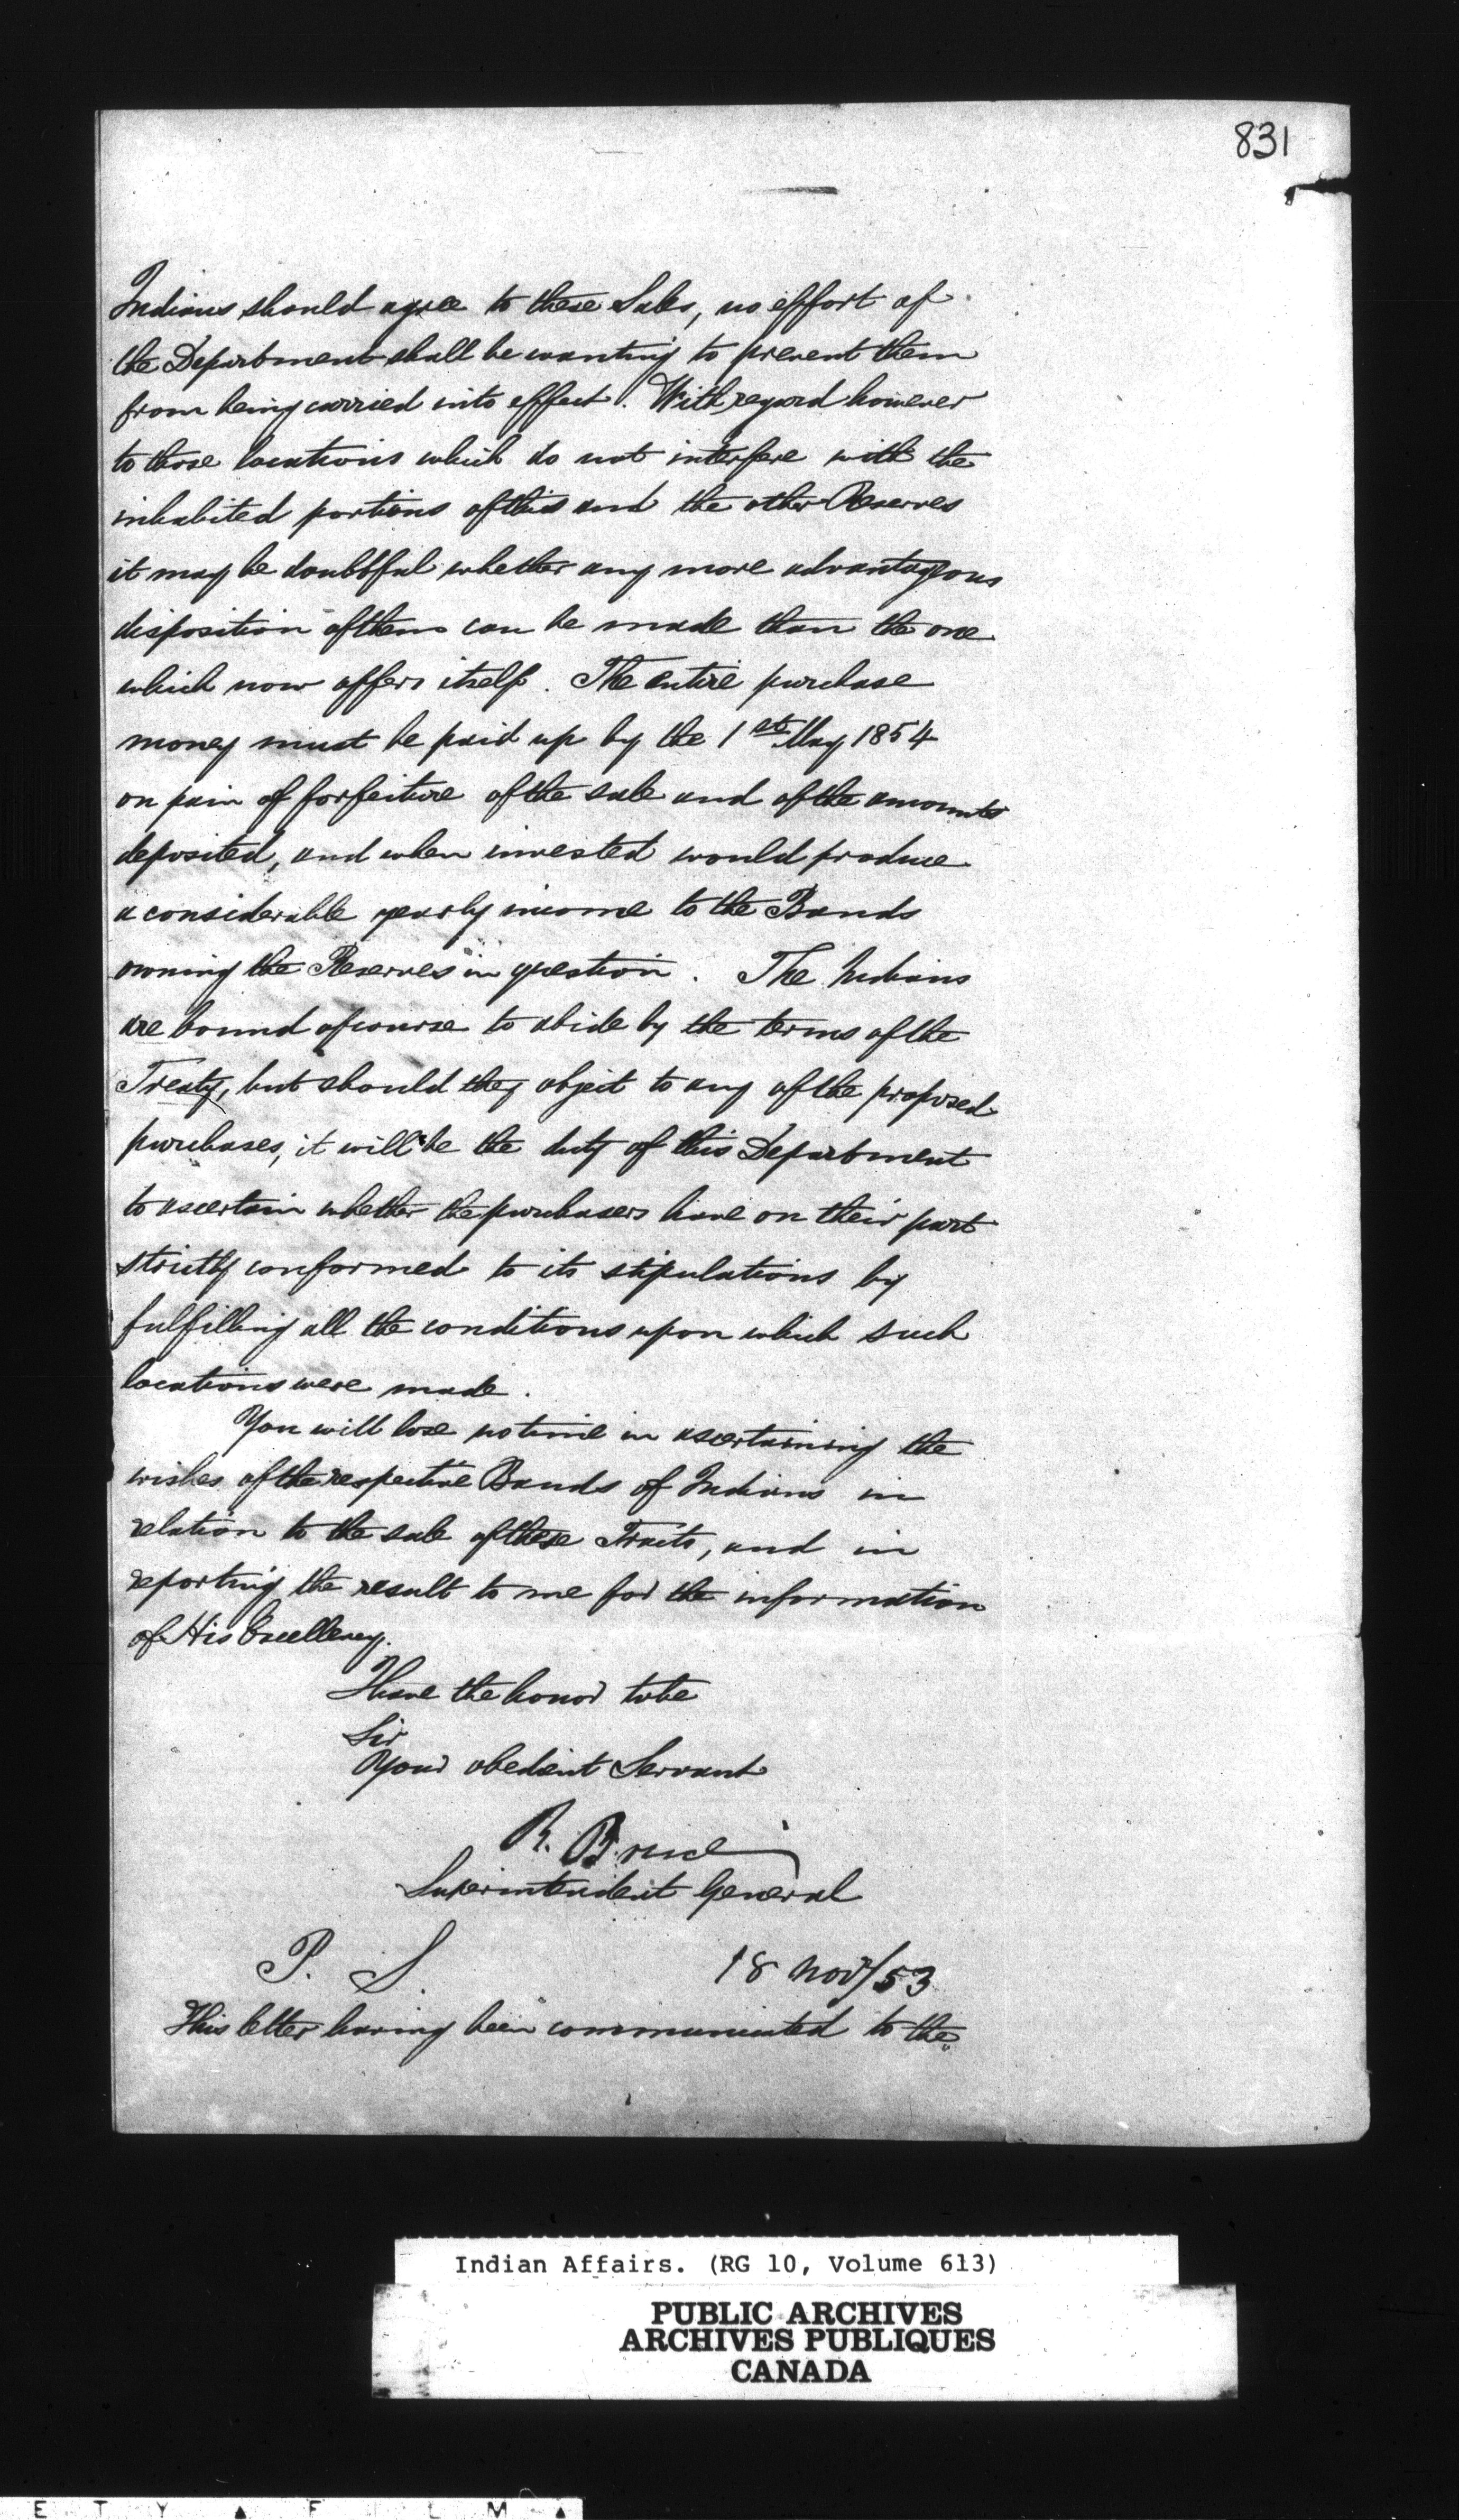 831
Indians should agree to these Sales, no effort of
the Department shall be wanting to prevent them
from being carried into effect. With regard however
to those locations which do not interfere with the
inhabited portions of this and the other Reserves
it may be doubtful whether any more advantageous
disposition of them can be made than the one
which now offers itself. The entire purchase
money must be paid up by the 1st May 1854
on pain of forfeiture of the sale and of the amounts
deposited, and when invested would produce
a considerable yearly income to the Bands
owning the Reserves in question. The Indians
are bound of course to abide by the terms of the
Treaty, but should they object to any of the proposed
purchases, it will be the duty of this Department
to ascertain whether the purchasers have on their part
strictly conformed to its stipulations by
fulfilling all the conditions upon which such
locations were made.
You will lose no time in ascertaining the
wishes of the respective Bands of Indians in
relation to the sale of these Tracts, and in
reporting the result to me for the information
of His Excellency.
I have the honor to be
Sir
Your obedient Servant
R. Bruce
Superintendent General
P. S. 18 Nov/53
This letter having been communicated to the
Indian Affairs. (RG 10, Volume 613)
PUBLIC ARCHIVES
ARCHIVES PUBLIQUES
CANADA
E T Y ▲ F I L M ▲